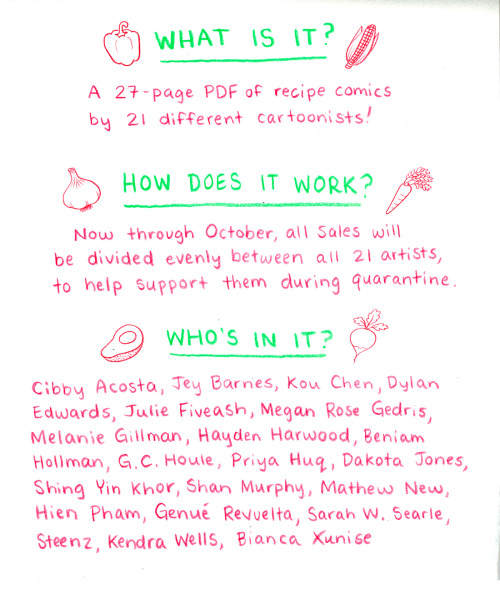 WHAT IS IT?
A 27-page PDF of recipe comics
by 21 different cartoonists!
HOW DOES IT WORK?
Now through October, all sales will
be divided evenly between all 21 artists,
to help support them during quarantine.
WHO'S IN IT?
Cibby Acosta, Jey Barnes, Kou Chen, Dylan
Edwards, Julie Fiveash, Megan Rose Gedris,
Melanie Gillman, Hayden Harwood, Beniam
Hollman, G.C. Houle, Priya Huq, Dakota Jones,
Shing Yin Khor, Shan Murphy, Mathew New,
Hien Pham, Genué Revuelta, Sarah W. Searle,
Steenz, Kendra Wells, Bianca Xunise